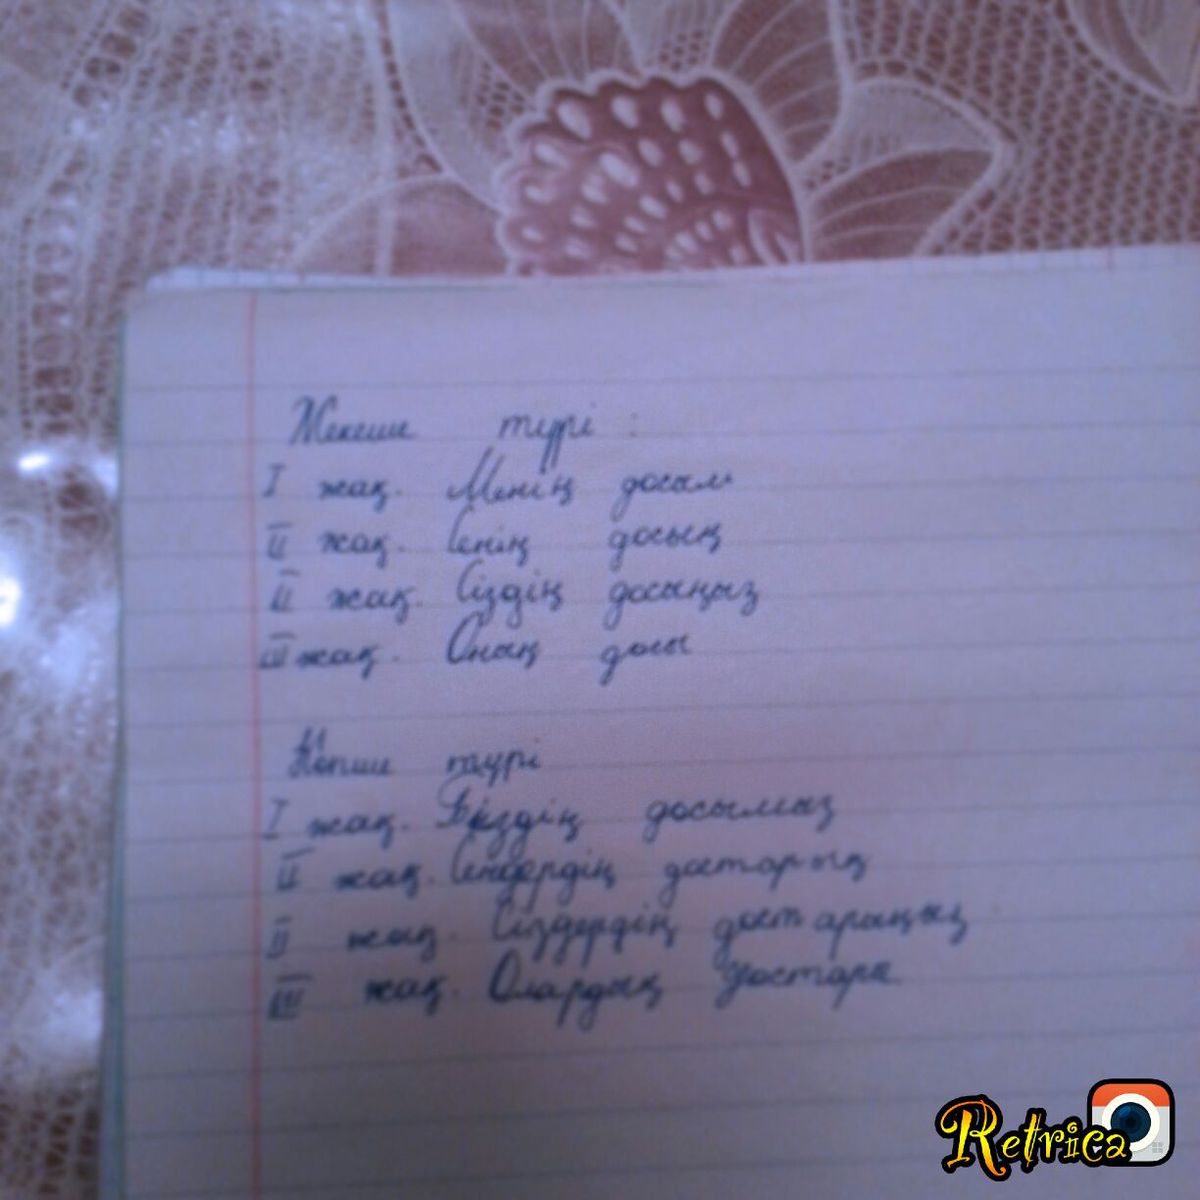 Жекеше түрі :
I жақ. Менің досым
II жақ. Сенің досың
II жақ. Сіздің досыңыз
III жақ. Оның досы
Көпше түрі
I жақ. Біздің досымыз
II жақ. Сендердің достарың
II жақ. Сіздердің достарыңыз
III жақ. Олардың достары
Retrica